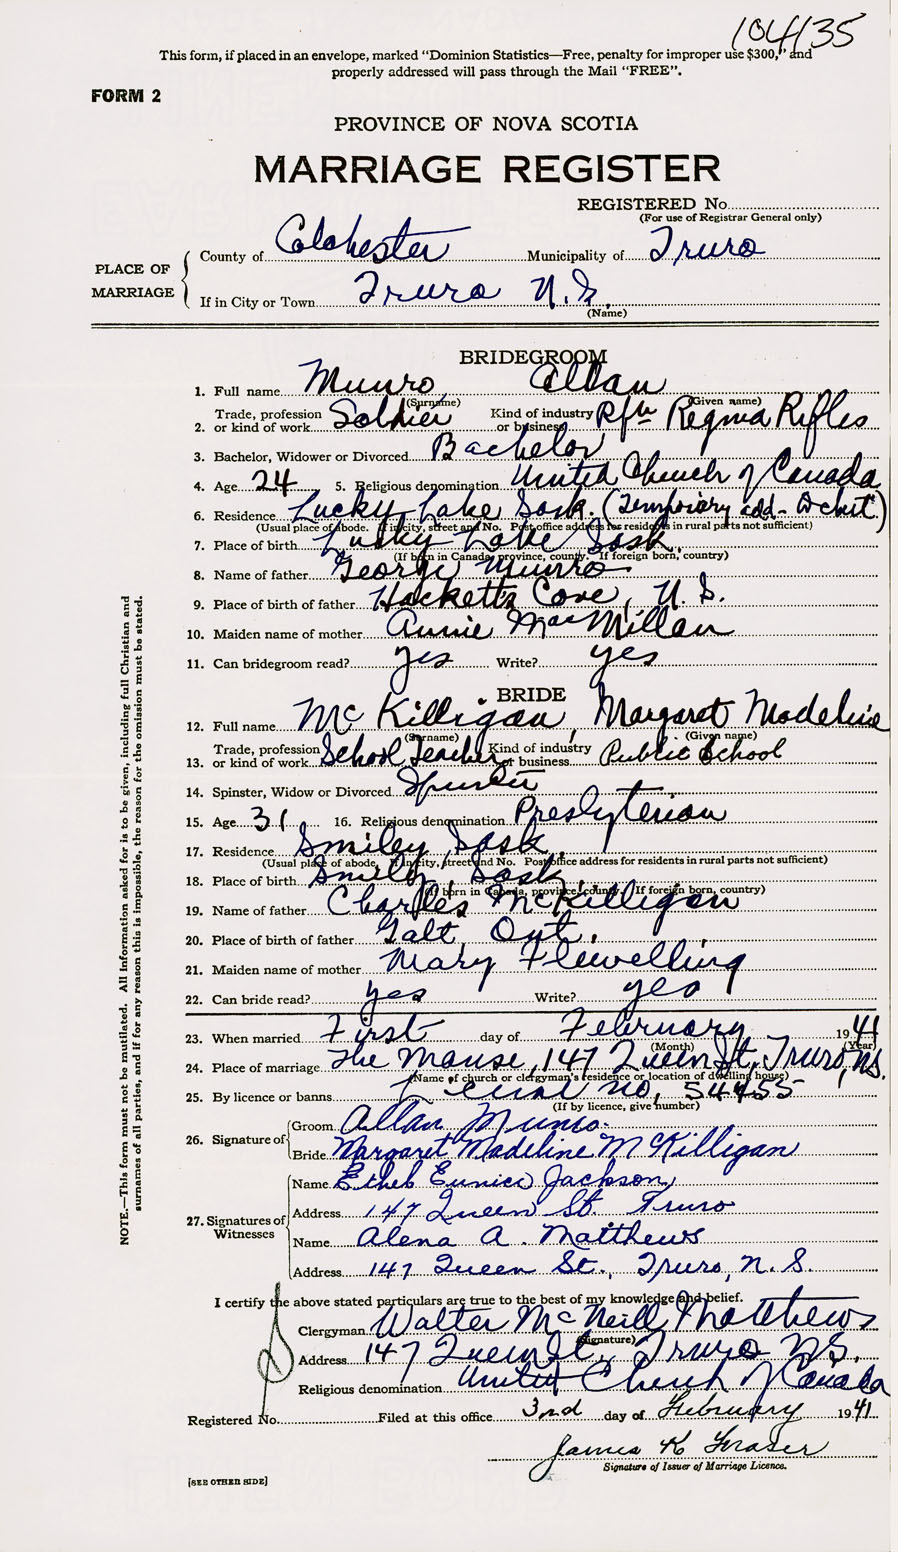 104135
This form, if placed in an envelope, marked "Dominion Statistics—Free, penalty for improper use $300," and
properly addressed will pass through the Mail "FREE".
FORM 2
PROVINCE OF NOVA SCOTIA
MARRIAGE REGISTER
REGISTERED No.
(For use of Registrar General only)
PLACE OF MARRIAGE
County of Colchester Municipality of Truro
If in City or Town Truro N.S.
(Name)
BRIDEGROOM
1. Full name Munro, Allan
(Surname) (Given name)
2. Trade, profession or kind of work Soldier Kind of industry or business Rfn Regina Rifles
3. Bachelor, Widower or Divorced Bachelor
4. Age 24 5. Religious denomination United Church of Canada
6. Residence Lucky Lake Sask. (Temporary add - Debert)
(Usual place of abode. If in city, street and No. Post office address for residents in rural parts not sufficient)
7. Place of birth Lucky Lake Sask.
(If born in Canada, province, county. If foreign born, country)
8. Name of father George Munro
9. Place of birth of father Hacketts Cove, N.S.
10. Maiden name of mother Annie MacMillan
11. Can bridegroom read? yes Write? yes
BRIDE
12. Full name McKilligan, Margaret Madeline
(Surname) (Given name)
13. Trade, profession or kind of work School Teacher Kind of industry or business Public School
14. Spinster, Widow or Divorced Spinster
15. Age 31 16. Religious denomination Presbyterian
17. Residence Smiley, Sask.
(Usual place of abode. If in city, street and No. Post office address for residents in rural parts not sufficient)
18. Place of birth Smiley, Sask.
(If born in Canada, province, county. If foreign born, country)
19. Name of father Charles McKilligan
20. Place of birth of father Galt, Ont.
21. Maiden name of mother Mary Flewelling
22. Can bride read? yes Write? yes
23. When married First day of February 1941
(Month) (Year)
24. Place of marriage The Manse, 147 Queen St., Truro, N.S.
(Name of church or clergyman's residence or location of dwelling house)
25. By licence or banns License no. 54455
(If by licence, give number)
26. Signature of
Groom Allan Munro.
Bride Margaret Madeline McKilligan
27. Signatures of Witnesses
Name Ethel Eunice Jackson,
Address 147 Queen St. Truro
Name Alena A. Matthews
Address 147 Queen St., Truro, N.S.
I certify the above stated particulars are true to the best of my knowledge and belief.
Clergyman Walter McNeill Matthews
(Signature)
Address 147 Queen St., Truro N.S.
Religious denomination United Church of Canada
Registered No. Filed at this office 3rd day of February 1941
James K Fraser
Signature of Issuer of Marriage Licence.
[SEE OTHER SIDE]
NOTE.—This form must not be mutilated. All Information asked for is to be given, including full Christian and
surnames of all parties, and if for any reason this is impossible, the reason for the omission must be stated.